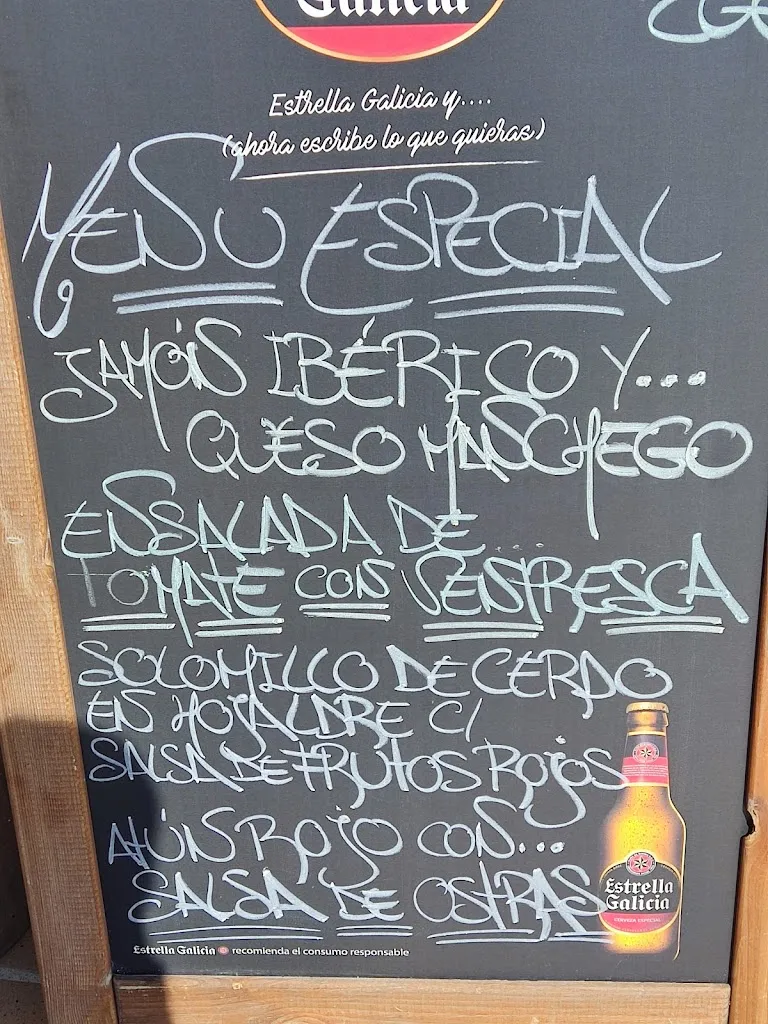 Galicia
Estrella Galicia y....
(ahora escribe lo que quieras)
MENÚ ESPECIAL
JAMÓN IBÉRICO Y...
QUESO MANCHEGO
ENSALADA DE
TOMATE CON VENTRESCA
SOLOMILLO DE CERDO
EN HOJALDRE C/
SALSA DE FRUTOS ROJOS
ATÚN ROJO CON...
SALSA DE OSTRAS
Estrella
Galicia
CERVEZA ESPECIAL
Estrella Galicia recomienda el consumo responsable